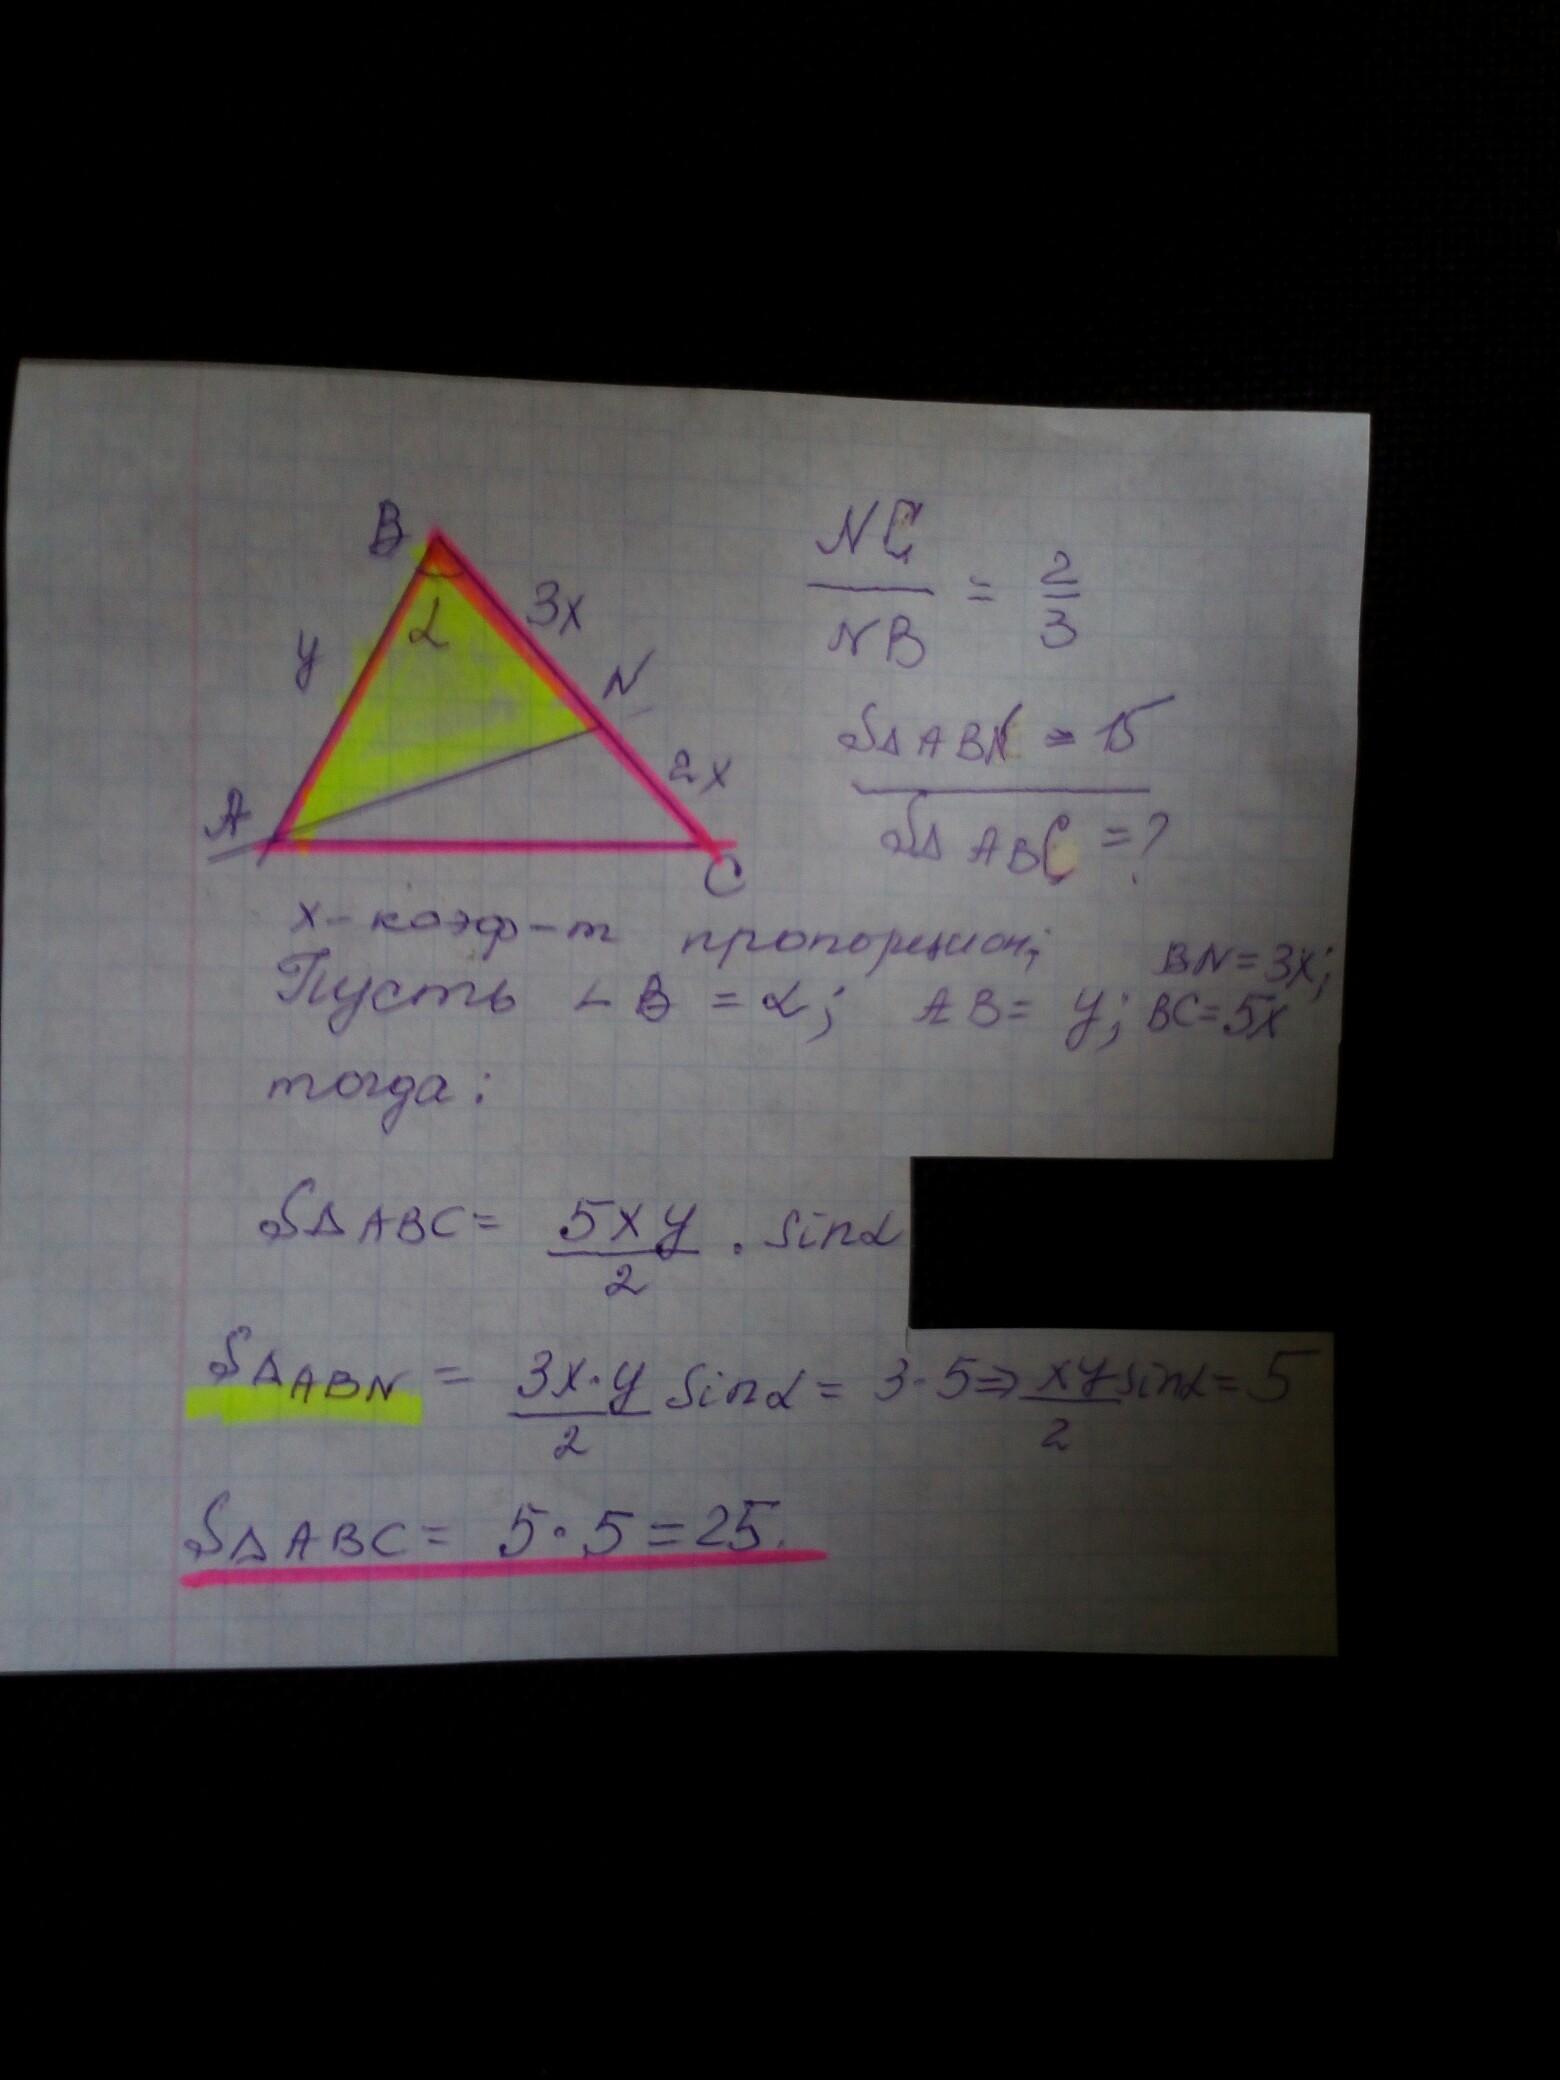 B
3x
α
y
N
2x
A
C
NC/NB = 2/3
S△ABN = 15
S△ABC = ?
x - коэф-т пропорцион;
BN = 3x;
Пусть ∠B = α; AB = y; BC = 5x
тогда:
S△ABC = 5xy/2 · sinα
S△ABN = 3x·y/2 sinα = 3·5 ⇒ xy/2 sinα = 5
S△ABC = 5·5 = 25.